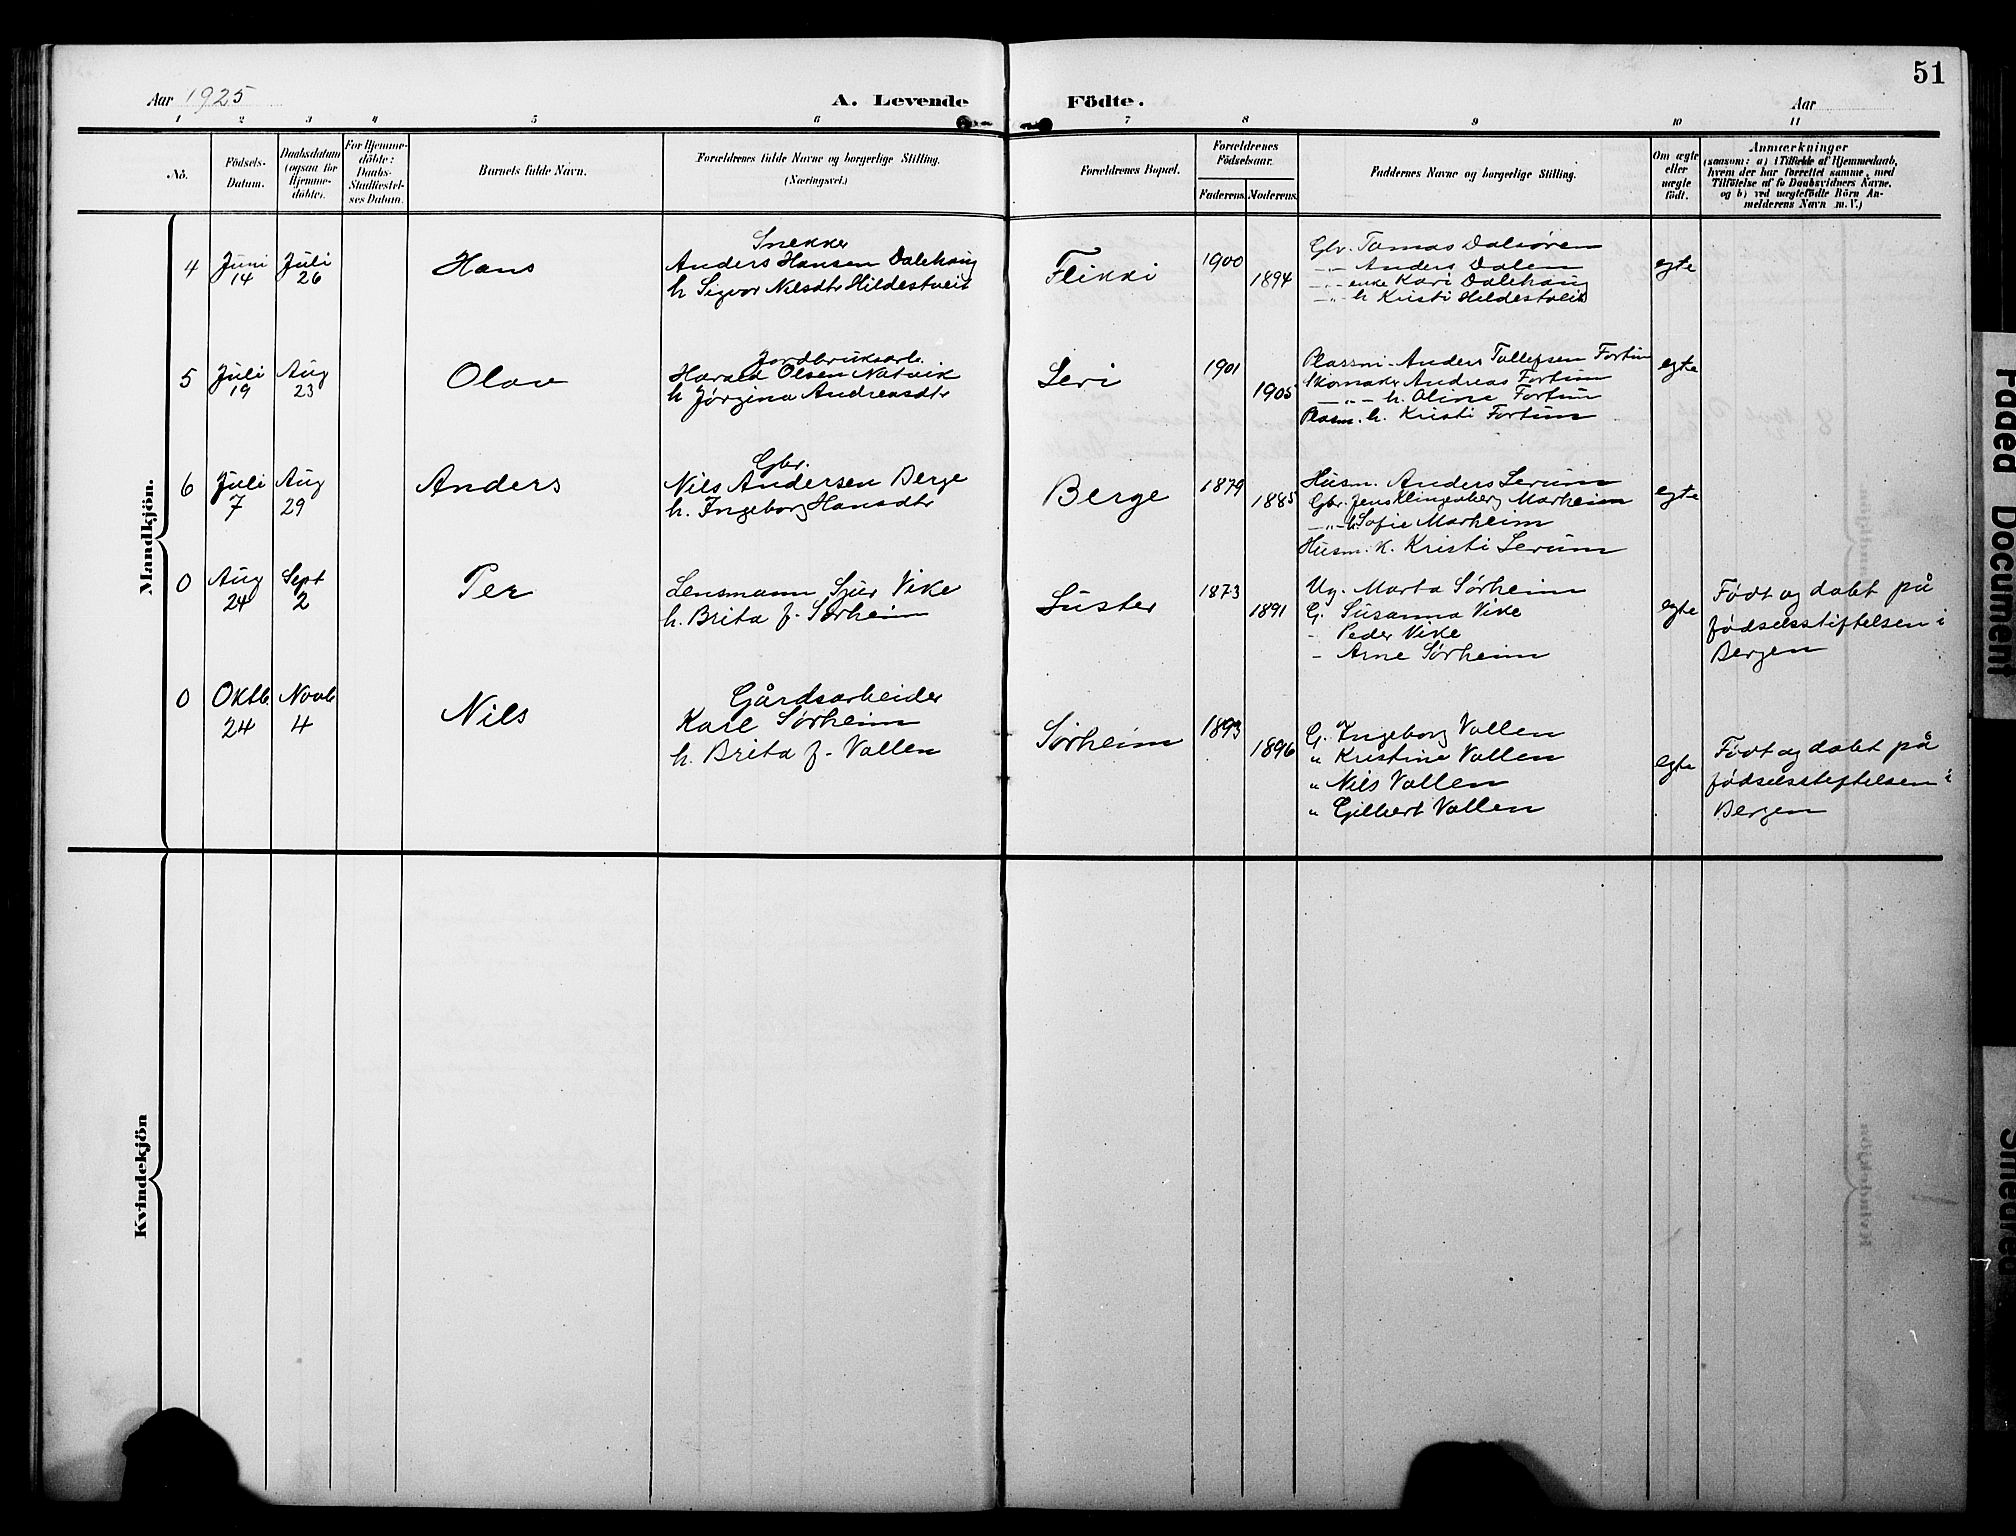 51
Aar 1925
A. Levende Födte.
Aar
1 2 3 4 5 6 7 8 9 10 11
No.
Födsels-
Datum.
Daabsdatum
(ogsaa for
Hjemme-
döbte).
For Hjemme-
döbte:
Daabs-
Stadfæstel-
ses Datum.
Barnets fulde Navn.
Forældrenes fulde Navne og borgerlige Stilling.
(Næringsvei.)
Forældrenes Bopæl.
Forældrenes
Födselsaar.
Faderens.
Moderens.
Faddernes Navne og borgerlige Stilling.
Om ægte
eller
uægte
födt.
Anmærkninger
(saasom: a) i Tilfælde af Hjemmedaab,
hvem der har forrettet samme, med
Tilföielse af to Daabsvidners Navne,
og b) ved uægtefödte Börn An-
melderens Navn m. V.)
Mandkjön.
4
Juni
14
Juli
26
Hans
Snekker
Anders Hansen Dalehaug
h Sigvor Nilsdtr Hildestveit
Flikki
1900
1894
Gbr. Tomas Dalsøren
-"- Anders Dalen
-"- enke Kari Dalehaug
-"- h Kristi Hildestveit
egte
5
Juli
19
Aug
23
Olav
Jordbruksarb.
Harald Olsen Natvik
h Jørgina Andreasdtr
Leri
1901
1905
Plassm. Anders Tollefsen Fortun
Skomaker Andreas Fortun
-"- h. Oline Fortun
Plasm. h. Kristi Fortun
egte
6
Juli
7
Aug
29
Anders
Gbr.
Nils Andersen Berge
h. Ingeborg Hansdtr
Berge
1879
1885
Husm. Anders Lerum
Gbr. Jens Klingenberg Marheim
-"- h Sofie Marheim
Husm. h. Kristi Lerum
egte
0
Aug
24
Sept
2
Per
Lensmann Sjur Vike
h. Brita f. Sørheim
Luster
1873
1891
Ug. Marta Sørheim
G. Susanna Vike
- Peder Vike
- Arne Sørheim
egte
Født og døbt på
fødselsstiftelsen i
Bergen
0
Oktb.
24
Novb
4
Nils
Gårdsarbeider
Kare Sørheim
h. Brita f. Vallen
Sørheim
1893
1896
G. Ingeborg Vallen
" Kristine Vallen
" Nils Vallen
" Gilbert Vallen
egte
Født og døbt på
fødselsstiftelsen i
Bergen
Kvindekjön
Faded Document